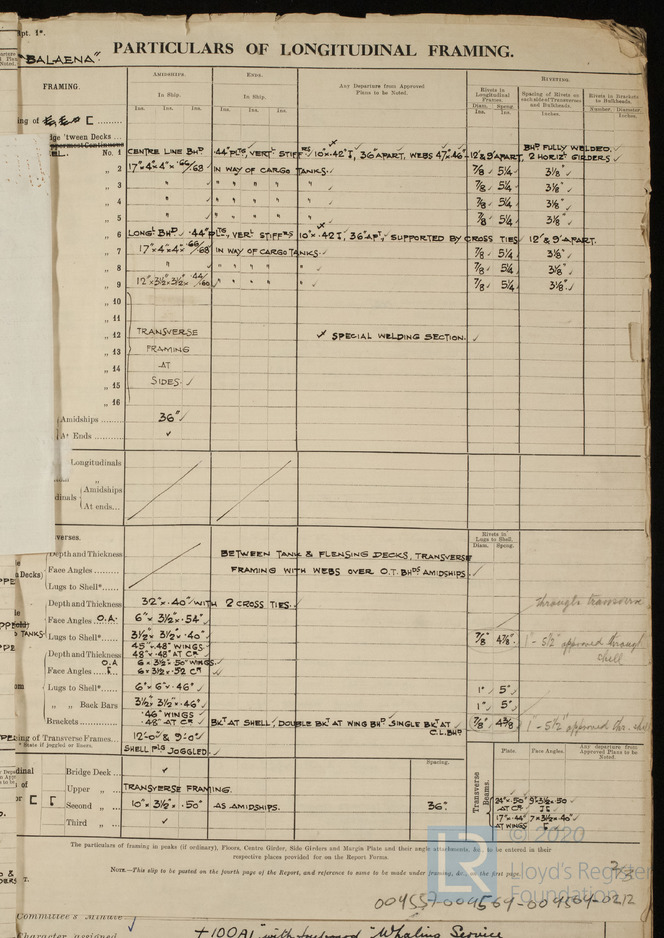 pt. 1*.
"BALAENA".
PARTICULARS OF LONGITUDINAL FRAMING.
FRAMING.
AMIDSHIPS.
ENDS.
Any Departure from Approved Plans to be Noted.
RIVETING.
In Ship.
In Ship.
Rivets in Longitudinal Frames.
Spacing of Rivets on each side of Transverses and Bulkheads.
Rivets in Brackets to Bulkheads.
Ins. Ins. Ins. Ins. Ins. Ins.
Diam. Ins. Spcng. Ins. Inches. Number. Diameter. Inches.
ing of
dge 'tween Decks
BHD FULLY WELDED.
No. 1 CENTRE LINE BHD .44" PLTS, VERT STIFFRS 10"×.42 I, 36" APART, WEBS 47"×.46" - 12' & 9' APART, 2 HORIZ GIRDERS
„ 2 17"×4"×4"×.66/.68 IN WAY OF CARGO TANKS. 7/8 5 1/4 3 1/8"
„ 3 " " " " " 7/8 5 1/4 3 1/8"
„ 4 " " " " " 7/8 5 1/4 3 1/8"
„ 5 " " " " " 7/8 5 1/4 3 1/8"
„ 6 LONGL BHD. .44" PLTS, VERT STIFFRS 10"×.42 I, 36" APT, SUPPORTED BY CROSS TIES 12' & 9' APART.
„ 7 17"×4"×4"×.66/.68 IN WAY OF CARGO TANKS. 7/8 5 1/4 3 1/8"
„ 8 " " " " " 7/8 5 1/4 3 1/8"
„ 9 12"×3 1/2"×3 1/2"×.44/.60 " " " " 7/8 5 1/4 3 1/8"
„ 10
„ 11
„ 12 TRANSVERSE SPECIAL WELDING SECTION.
„ 13 FRAMING
„ 14 AT
„ 15 SIDES.
„ 16
Amidships 36"
At Ends
Longitudinals
„
dinals Amidships
At ends
verses.
Rivets in Lugs to Shell.
Diam. Spcng.
Depth and Thickness BETWEEN TANK & FLENSING DECKS, TRANSVERSE
Face Angles FRAMING WITH WEBS OVER O.T. BHDS AMIDSHIPS.
Decks)
Lugs to Shell*
Depth and Thickness 32"×.40" WITH 2 CROSS TIES.
Face Angles O.A. 6"×3 1/2"×.54"
TANKS
Lugs to Shell* 3 1/2"×3 1/2"×.40" 7/8" 4 7/8"
through transverse
1" - 5 1/2" approved through shell
Depth and Thickness 45"×.48" WINGS 48"×.48" AT CR
O.A 6×3 1/2×.50" WINGS
Face Angles 6×3 1/2×.52 CR
Lugs to Shell* 6"×6"×.46" 1" 5"
„ „ Back Bars 3 1/2"×3 1/2"×.46" 1" 5"
Brackets .46" WINGS .45" AT CR BKT AT SHELL, DOUBLE BKT AT WING BHD, SINGLE BKT AT C.L.BHD 7/8" 4 3/8 1" - 5 1/2" approved thr. shell
ing of Transverse Frames 12'-0" & 9'-0"
* State if joggled or liners. SHELL PLG JOGGLED.
Spacing.
Transverse Beams.
Plate. Face Angles. Any departure from Approved Plans to be Noted.
Bridge Deck
Upper „ TRANSVERSE FRAMING.
Second „ 10"×3 1/2"×.50" AS AMIDSHIPS. 36"
Third „
24"×.50" 9"×3 1/2×.50
AT CR
17"×.44" 7×3 1/2×.40"
AT WINGS
The particulars of framing in peaks (if ordinary), Floors, Centre Girder, Side Girders and Margin Plate and their angle attachments, &c., to be entered in their
respective places provided for on the Report Forms.
NOTE.—This slip to be pasted on the fourth page of the Report, and reference to same to be made under framing, &c., on the first page.
LR
© 2020
Lloyd's Register
Foundation
004557-004564-004564-0212
Committee's Minute
Character assigned +100A1 "with freeboard "Whaling Service